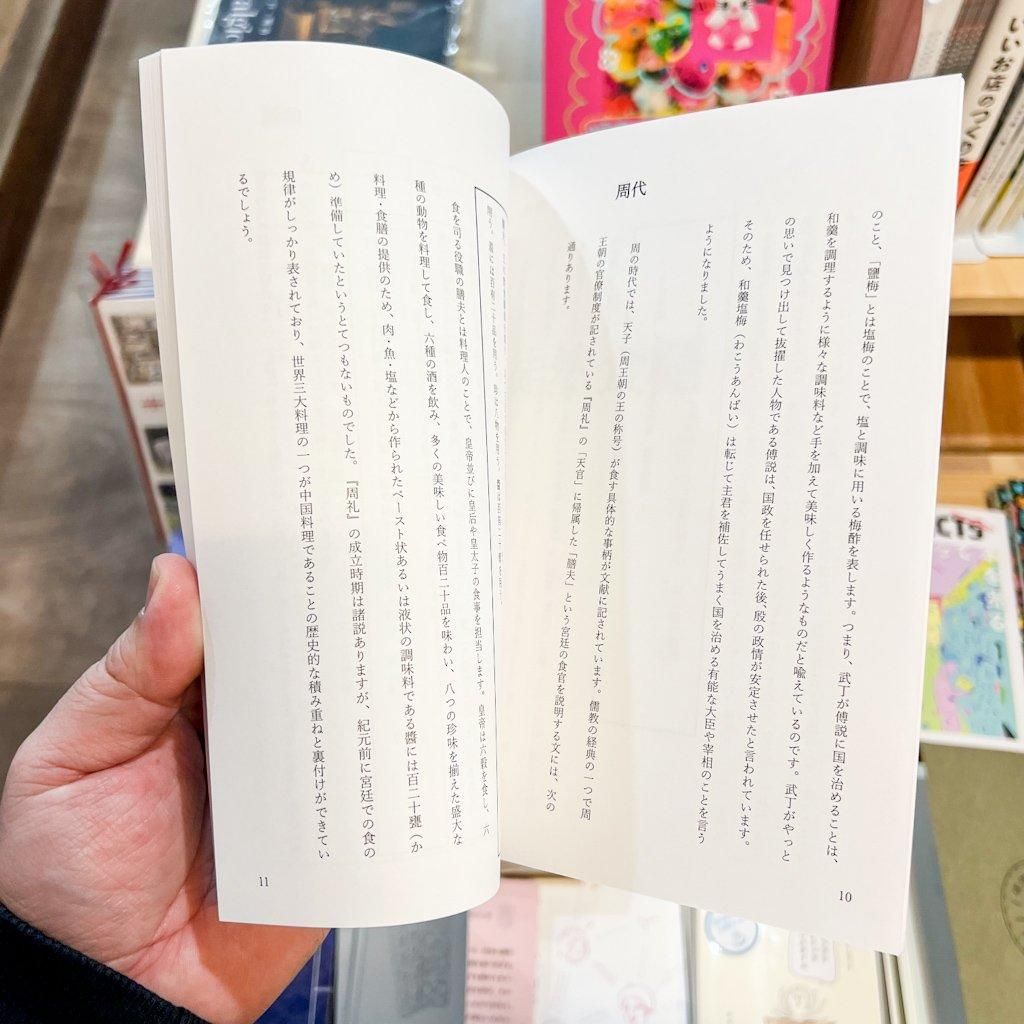 のこと、「鹽梅」とは塩梅のことで、塩と調味に用いる梅酢を表します。つまり、武丁が傅説に国を治めることは、
和羹を調理するように様々な調味料など手を加えて美味しく作るようなものだと喩えているのです。武丁がやっと
の思いで見つけ出して抜擢した人物である傅説は、国政を任せられた後、殷の政情が安定させたと言われています。
そのため、和羹塩梅（わこうあんばい）は転じて主君を補佐してうまく国を治める有能な大臣や宰相のことを言う
ようになりました。
周代
周の時代では、天子（周王朝の王の称号）が食す具体的な事柄が文献に記されています。儒教の経典の一つで周
王朝の官僚制度が記されている『周礼』の「天官」に帰属した「膳夫」という宮廷の食官を説明する文には、次の
通りあります。
10
食を司る役職の膳夫とは料理人のことで、皇帝並びに皇后や皇太子の食事を担当します。皇帝は六穀を食し、六
種の動物を料理して食し、六種の酒を飲み、多くの美味しい食べ物百二十品を味わい、八つの珍味を揃えた盛大な
料理・食膳の提供のため、肉・魚・塩などから作られたペースト状あるいは液状の調味料である醬には百二十甕（か
め）準備していたというとてつもないものでした。『周礼』の成立時期は諸説ありますが、紀元前に宮廷での食の
規律がしっかり表されており、世界三大料理の一つが中国料理であることの歴史的な積み重ねと裏付けができてい
るでしょう。
11
いいお店のつくり
CTS